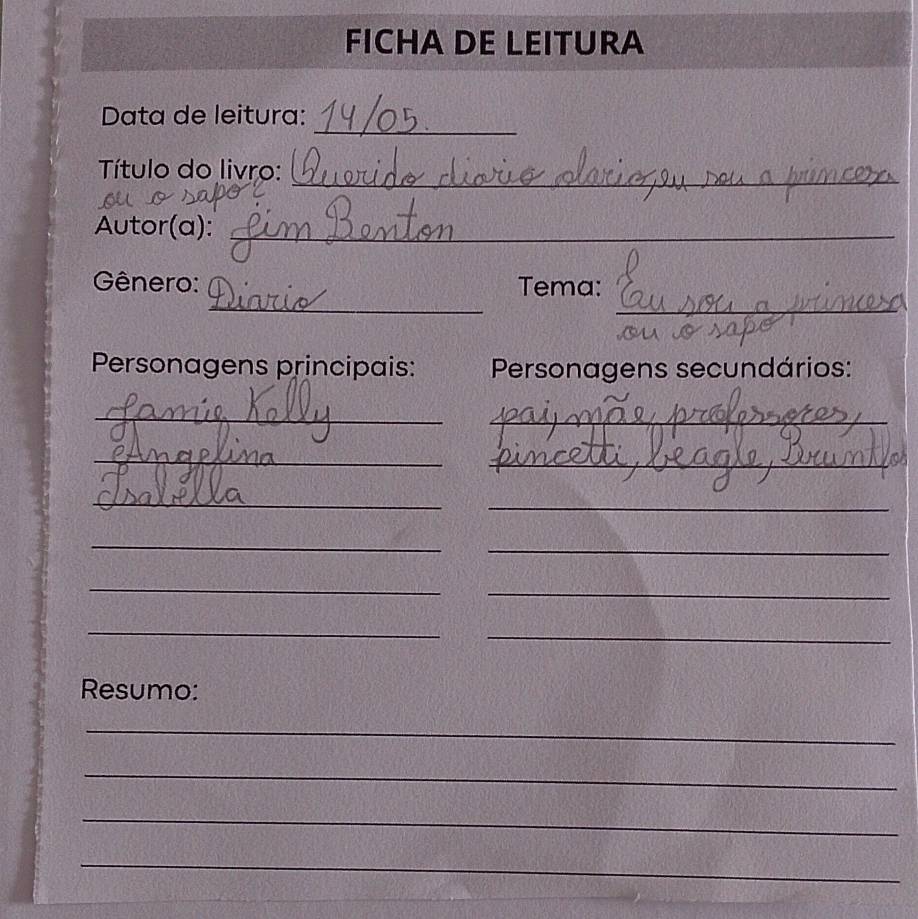 FICHA DE LEITURA
Data de leitura: 14/05.
Título do livro: Querido diario otario, eu sou a princesa
ou o sapo?
Autor(a): Jim Benton
Gênero: Diario
Tema: Eu sou a princesa
ou o sapo
Personagens principais:
Jamie Kelly
Angelina
Isabella
Personagens secundários:
pai, mãe, professores,
pincetti, beagle,
Resumo: